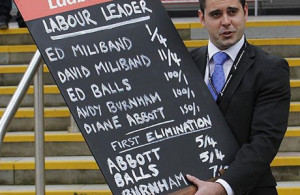 LABOUR LEADER
ED MILIBAND 1/4
DAVID MILIBAND 11/4
ED BALLS 100/1
ANDY BURNHAM 100/1
DIANE ABBOTT 150/1
FIRST ELIMINATION
ABBOTT 5/4
BALLS 5/4
BURNHAM